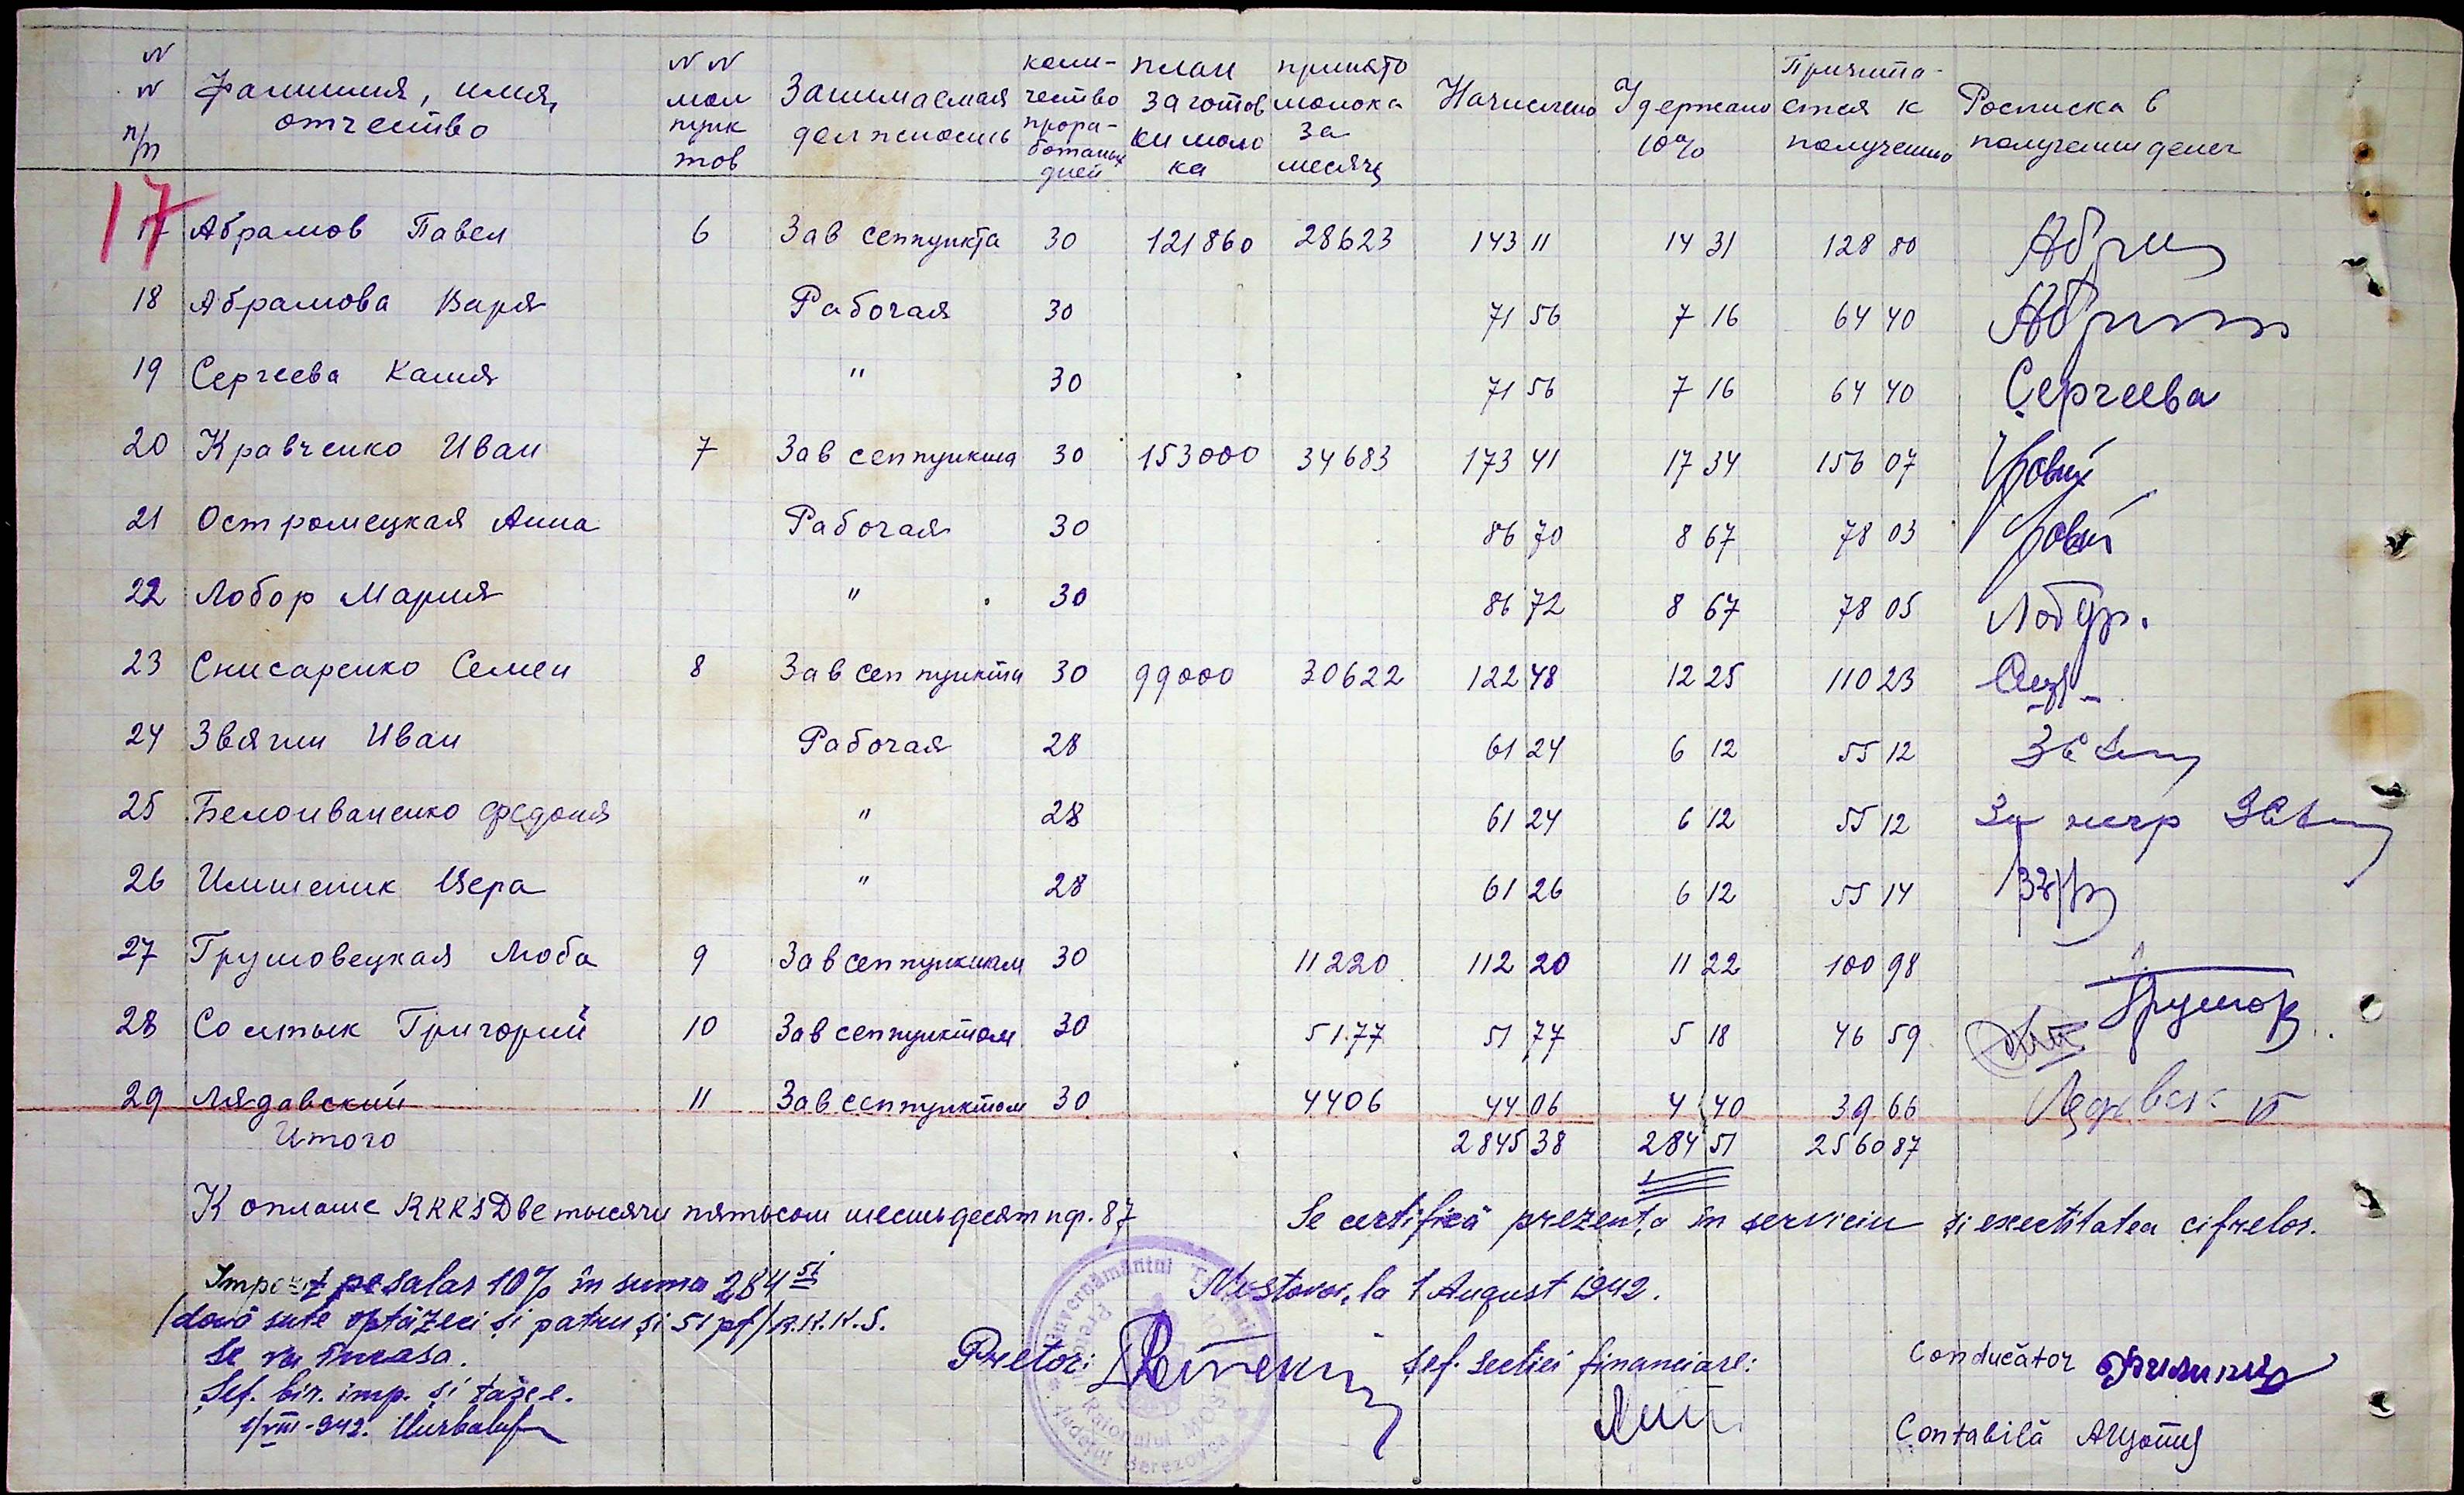 N N п/п Фамилия, имя, отчество N N мол пунктов Занимаемая должность количество проработаных дней план заготовки молока принято молока за месяц Начислено Удержано 10% Причитается к получению Росписка в получении денег
17 Абрамов Павел 6 Зав сеппункта 30 121860 28623 143 11 14 31 128 80 Абрам
18 Абрамова Варя Рабочая 30 71 56 7 16 64 40
19 Сергеева Катя " 30 71 56 7 16 64 40 Сергеева
20 Кравченко Иван 7 Зав сеппункта 30 153000 34683 173 41 17 34 156 07
21 Остромецкая Анна Рабочая 30 86 70 8 67 78 03
22 Лобор Мария " 30 86 72 8 67 78 05 Лобур.
23 Снисаренко Семен 8 Зав сеппункта 30 99000 30622 122 48 12 25 110 23
24 Звягин Иван Рабочая 28 61 24 6 12 55 12
25 Белоиваненко Федоня " 28 61 24 6 12 55 12 За негр
26 Илишеник Вера " 28 61 26 6 12 55 14
27 Грушовецкая Люба 9 Зав сеппунктам 30 11220 112 20 11 22 100 98 Грушов
28 Солтык Григорий 10 Зав сеппунктом 30 51.77 51 77 5 18 46 59
29 Лядавский 11 Зав сеппунктом 30 4406 44 06 4 40 39 66
Итого 2845 38 284 51 2560 87
К оплате RKKS Две тысячи пятьсот шестьдесят пф. 87
Se certifică prezența în serviciu și exectitatea cifrelor.
Impozit pe salar 10% în suma 284 51
(două sute optăzeci și patru și 51 pf) R.K.K.S.
se va încasa.
Șef. bir. imp. și taxe.
1/VIII-942.
Mostovoi, la 1 August 1942.
Pretor:
Șef. secției financiare:
Conducător
Contabilă
Guvernământul Transnistriei
Pretura Raionului Mostovoi
Județul Berezovca